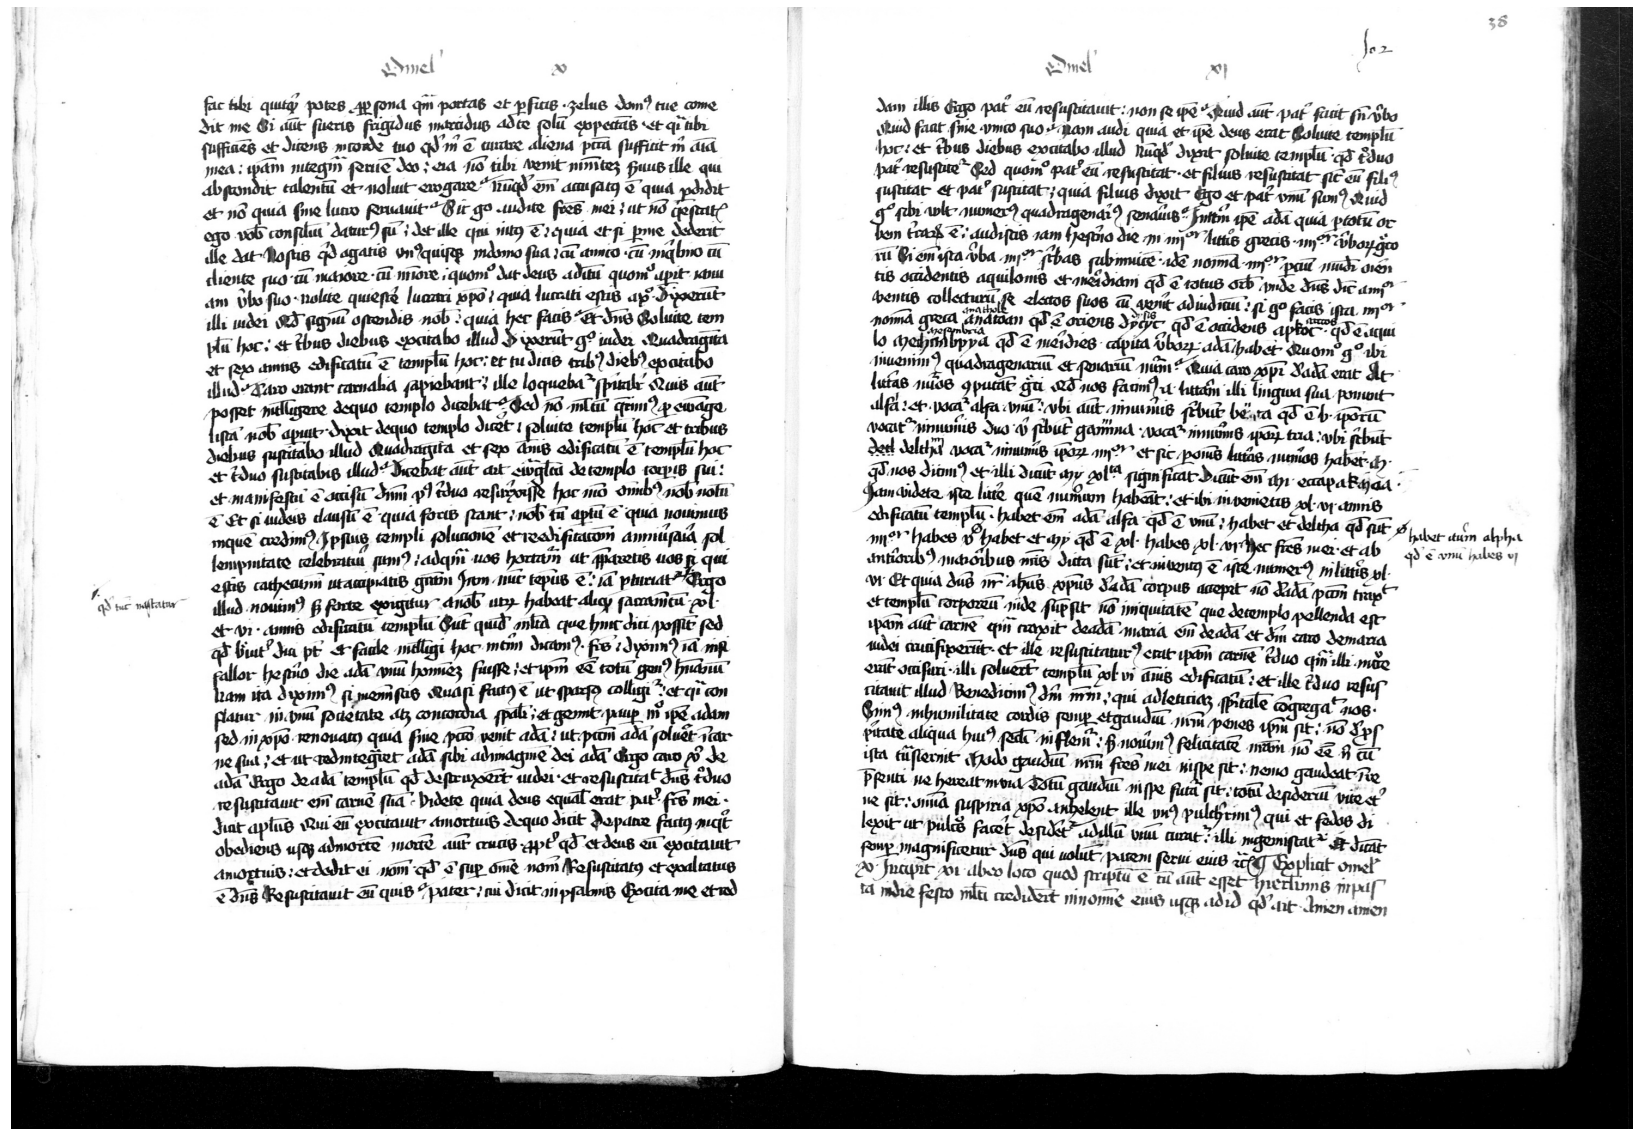 Omel' x
fac tibi quitqd potes pro psona qm portas et pficis. zelus dom9 tue come
dit me Si aut fueris frigidus marcidus ad te solu expectas. et qi tibi
sufficies et dicens in corde tuo qd m e curare aliena pcta sufficit m aia
mea: ipam integra seruem deo: eia no tibi venit in mtez seruus ille qui
abscondit talentu et noluit erogare nuqd em accusat9 e quia pdidit
et no quia sine lucro seruauit Sic go audite fres mei: ut no qescatis
ego vob consiliu datur9 su: det ille qui int9 e: quia et si p me dederit
ille dat Nostis qd agatis vn9quisq3 in domo sua: cu amico. cu inqlino cu
cliente suo. cu maiore. cu miore: quomo dat deus aditu quomo aperit ianu
am vbo suo. nolite quiescere lucrari xpo: quia lucrati estis a xpo Dixerut
illi iudei Qd signu ostendis nob: quia hec facis Et dns Soluite tem
plu hoc: et tribus diebus excitabo illud Dixerut go iudei Quadraginta
et sex annis edificatu e templu hoc: et tu dicis trib9 dieb9 excitabo
illud Caro erant carnalia sapiebant: ille loquebar spiritalr Quis aut
posset intelligere de quo templo dicebat Sed no mltu qrim9 per euange
lista nob apuit. dixit de quo templo dicet: soluite templu hoc et tribus
diebus suscitabo illud Quadraginta et sex annis edificatu e templu hoc
et triduo suscitabis illud Dicebat aut ait euagelista de templo corpis sui:
et manifestu e occisu dnm p9 triduo resurrexisse hoc mo omib9 nob notu
e Et si iudeis clausu e. quia foris stant: nob tn aptu e quia nouimus
in quem credim9 Ipsius templi solucione et reedificatom anniusaria sol
lempnitate celebraturi sum9: ad qm uos hortam ut pparetis uos si qui
estis cathecumini ut accipiatis gram Iam nuc tepus e: ia pturiat Ergo
illud nouim9 S3 forte exigitur a nob utrum habeat aliqd sacramtu xl.
et vi. annis edificatu templu Sut quid multa que hinc dici possit sed
qd breuiter dici pt et facile intelligi hoc intim dicam9. frs: dixim9 ia nisi
fallor hesterno die ada vnu homiez fuisse: et ipm ee totu gen9 humanu
Nam ita dixim9 si meministis Quasi fract9 e ut spars9 colligi: et qi con
flatur in vnu societate atq3 concordia spali: et gemit paup mo ipe adam
sed in xpo renouat9 quia sine pcto venit ada: ut pctm ada solueret i car
ne sua: et ut redintegraret ada sibi ad imagine dei ada Ergo caro xpi de
ada Ergo de ada templu qd destruxerut iudei et resuscitat dns triduo
resuscitauit em carne sua Videte quia deus equal erat patri frs mei.
dicit aplus Qui eu excitauit a mortuis de quo dicit De patre fact9 inqt
obediens usq3 ad morte morte aut crucis ppter qd et deus eu excitauit
a mortuis: et dedit ei nom qd e sup ome nom Resuscitat9 et exaltatus
e dns Resuscitauit eu quis pater: cui dicit in psalmis Excita me et red
qd tuc mistatur
38
Jo 2
Omel' xi
dam illis Ergo pat eu resuscitauit: non se ipe Quid aut pat facit sn vbo
Quid facit sine vnico suo Nam audi quia et ipe deus erat Soluite templu
hoc: et tribus diebus excitabo illud Nuqd dixit soluite templu qd triduo
pat resuscitet Sed quomo pat eu resuscitat. et filius resuscitat sic eu fili9
suscitat et pat suscitat: quia filius dixit Ego et pat vnu sum9 Quid
go sibi vult numer9 quadragenari9 senarius Interim ipe ada quia p totu or
bem terrarum e: audistis iam hesterno die in iiiior litteris grecis. iiiior vborum greco
ru Si em ista vba iiiior scribas sub inuice. ide nomina iiiior pciu mudi orien
tis occidentis aquilonis et meridiani qd e totus orb vnde dns dic a iiiior
ventis collecturu se electos suos cu venit ad iudiciu: si go facis ista iiiior
anathole disis arctos
nomina greca anatoan qd e oriens dycyc. qd e occidens apktoc. qd e aqui
mesembria
lo mechmbpya qd e meridies. capita vborum ada habet Quomo go ibi
inuenim9 quadragenariu et senariu num Quia caro xpi d ada erat At
litteras nuos 9putat greci Qd nos facim9 a. litteram illi lingua sua ponunt
alfa: et vocat alfa vnu: vbi aut in numis scribut beta qd e b. ipporu
vocat in numis duo vbi scribut gamma. vocat in numis ipor tria: vbi scribut
del deltha vocat in numis ipor iiiior et sic p omis litteras numos habet. M.
qd nos dicim9 et illi dicut my xlta significat Dicut em my. eccapakmda
Iam videte iste littere quem numerum habeat: et ibi inuenietis xl. vi. annis
edificatu templu. habet em ada alfa qd e vnu: habet et deltha qd sut
iiiior habes v habet et my qd e xl. habes xl. vi Hec fres mei. et ab
antiorib9 maioribus nris dicta sut: et inuent9 e iste numer9 in litteris xl.
vi Et quia dns nr ihus xpus d ada corpus accepit no d ada pctm traxit
et templu corporeu inde supsit no iniquitate que de templo pellenda est
ipam aut carne qm traxit de ada maria em de ada et dni caro de maria
iudei crucifixerut. et ille resuscitatur9 erat ipam carne triduo qm illi in cruce
erat occisuri. illi soluerut templu xl vi annis edificatu: et ille triduo resus
citauit illud Benedicim9 dm nrm: qui ad leticiaz spiritale cogregat nos.
Sim9 in humilitate cordis semp et gaudiu nrm penes ipm sit: no de ps
peritate aliqua hui9 secli inflem: s3 nouim9 felicitate nram no ee n cu
ista transierint Modo gaudiu nrm fres mei in spe sit: nemo gaudeat i re
psenti ne hereat in via Totu gaudiu in spe futura sit: totu desideriu vite et
ne sit: omia suspiria xpo anhelent ille vn9 pulcherrim9 qui et fedos di
lexit ut pulcros faceret desideret ad illu vnu curat: illi ingemiscat Et dicat
semp magnificetur dns qui volut pacem serui eius rc Explicit omel'
x. Incipit xi ab eo loco quod scriptu e cu aut esset hierlimis in pas
ca in die festo mlti crediderut in nomine eius usq3 ad id qd ait Amen amen
habet aut alpha
qd e vnu habes vi